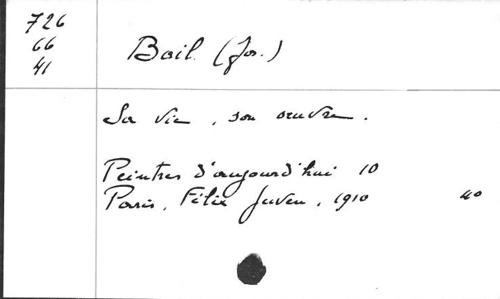 726
66
41
Bail. (Jos.)
Sa vie, son œuvre.
Peintres d'aujourd'hui 10
Paris, Félix Juven, 1910 40